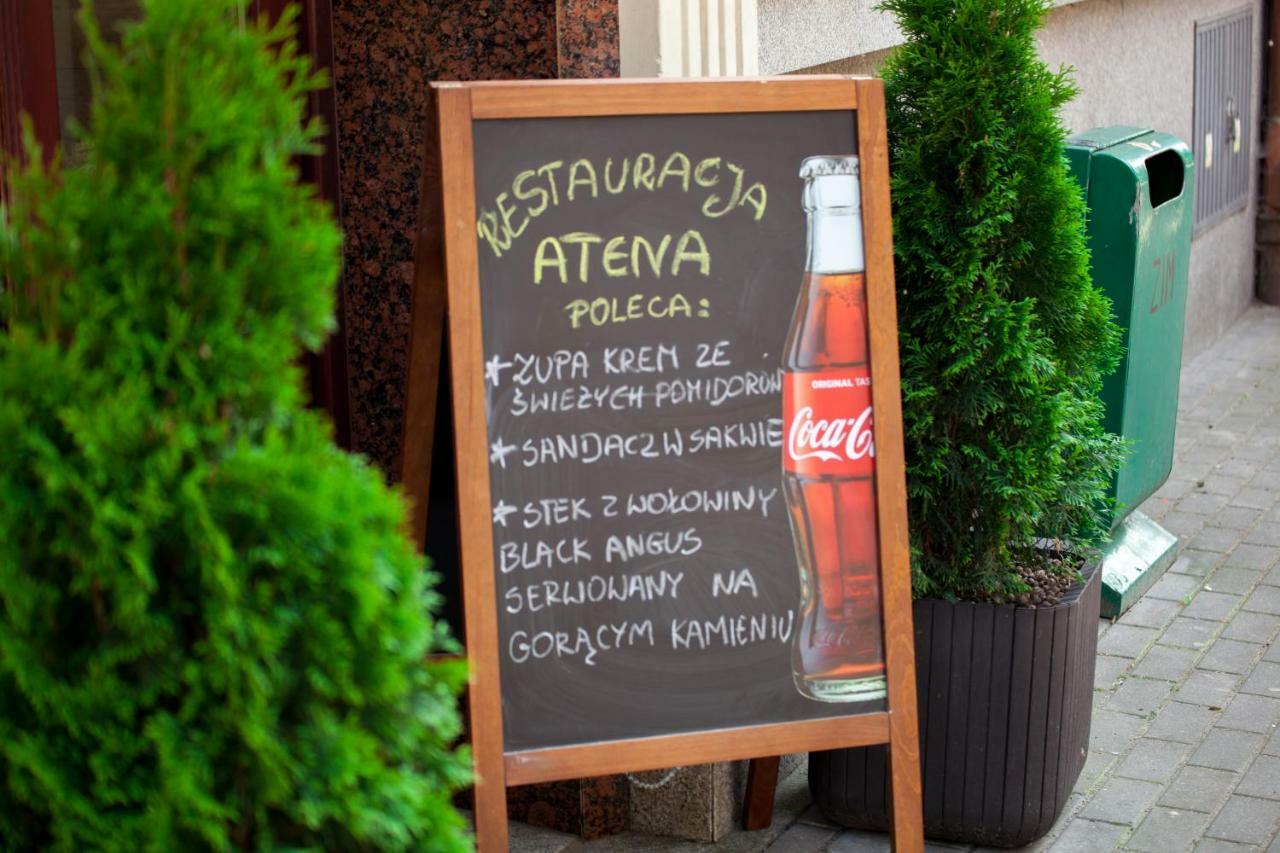 RESTAURACJA
ATENA
POLECA:
* ZUPA KREM ZE
ŚWIEŻYCH POMIDORÓW
* SANDACZ W SAKWIE
* STEK Z WOŁOWINY
BLACK ANGUS
SERWOWANY NA
GORĄCYM KAMIENIU
ORIGINAL TAS
Coca-C
ZIM